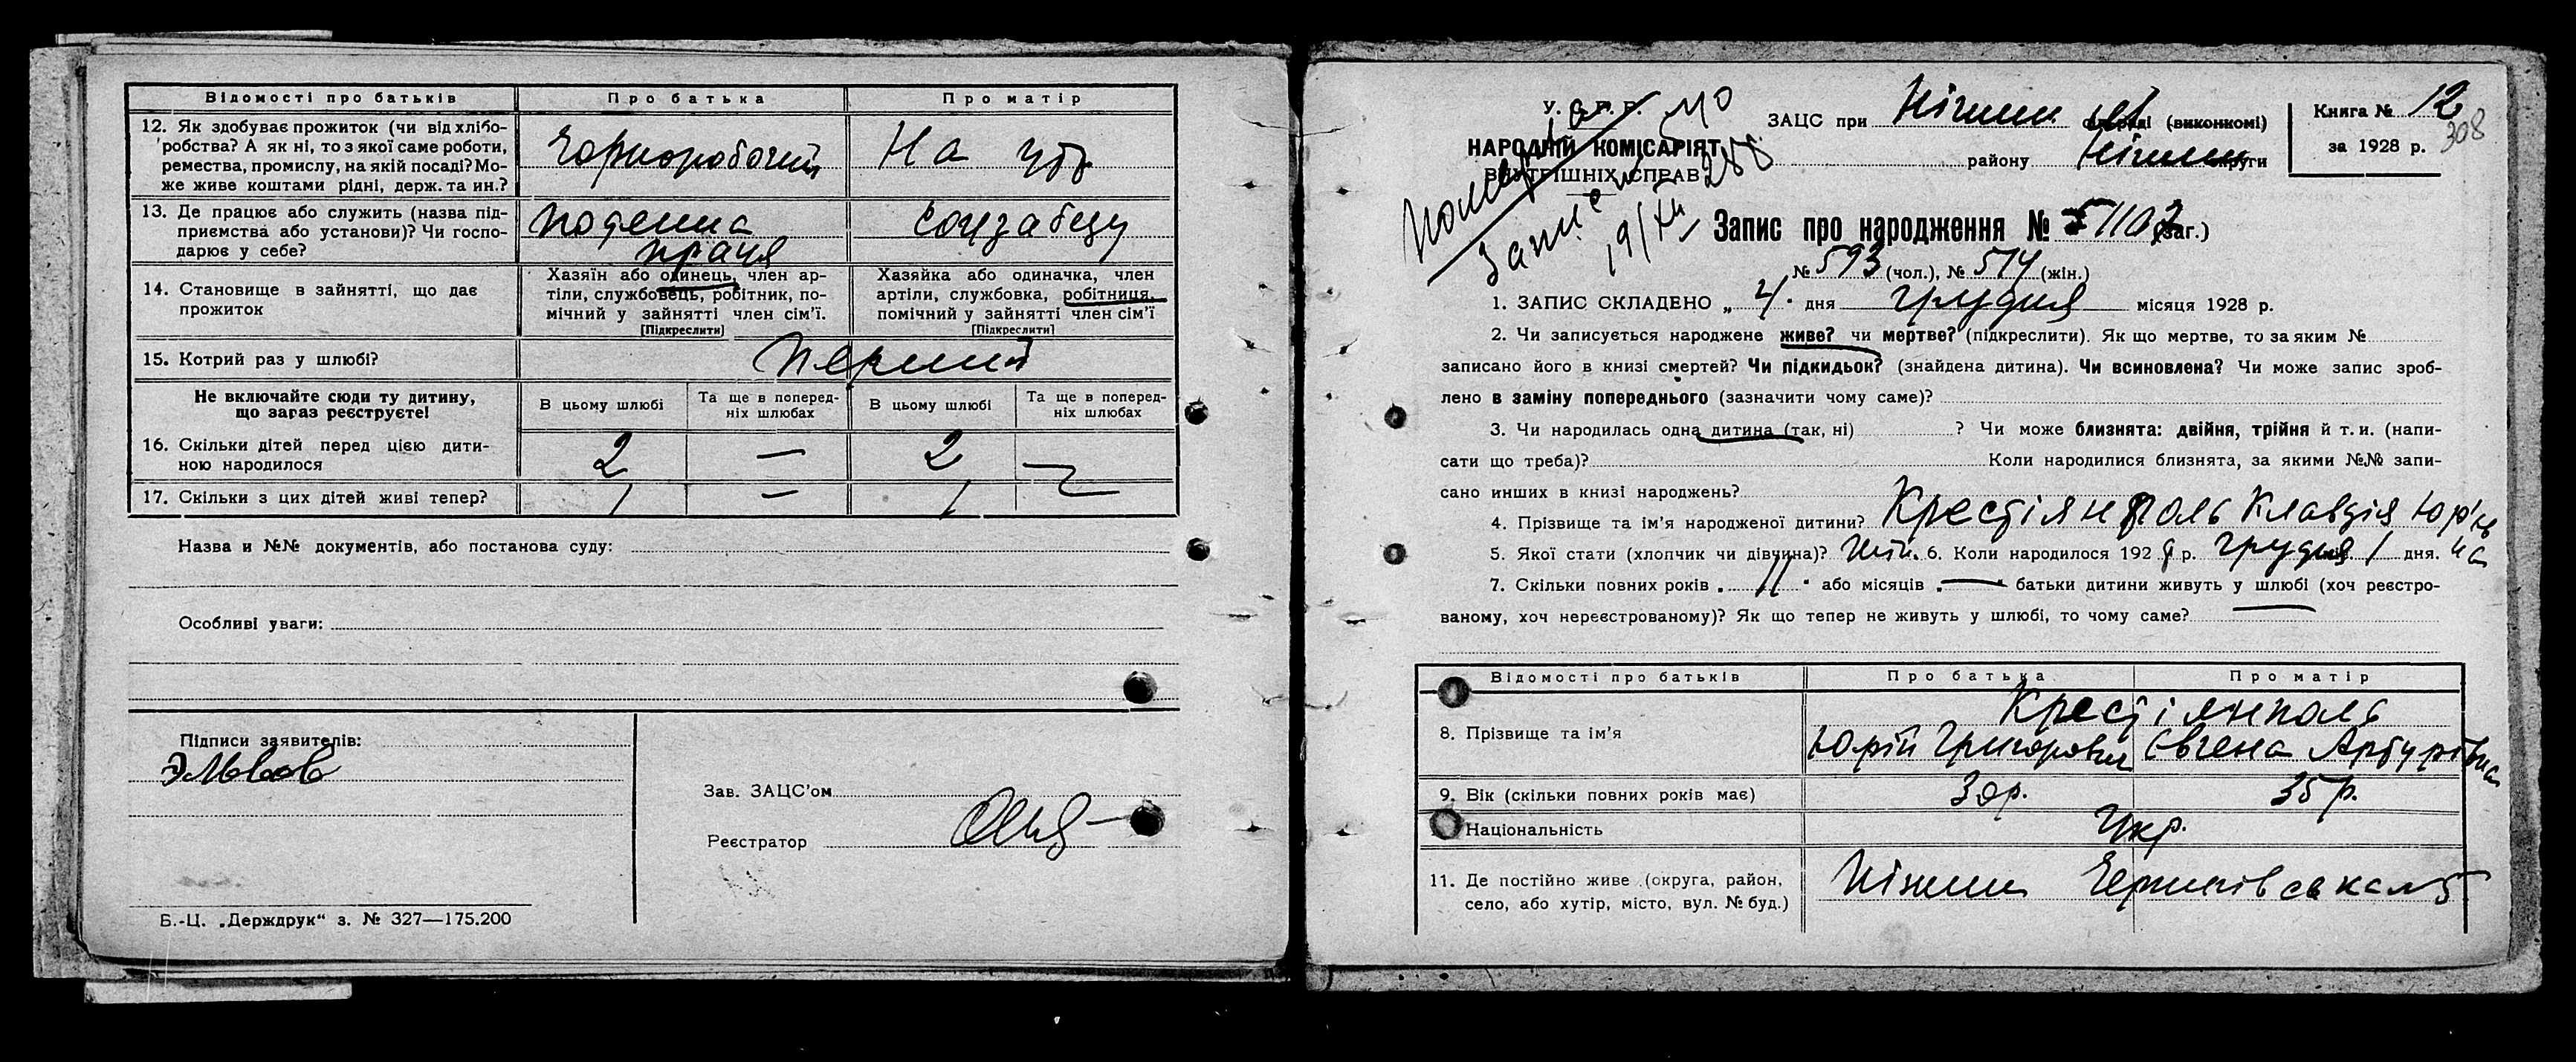 Відомості про батьків
Про батька
Про матір
12. Як здобуває прожиток (чи від хлібо-
робства? А як ні, то з якої саме роботи,
ремества, промислу, на якій посаді? Мо-
же живе коштами рідні, держ. та ин.?
Чорноробочий
На утр
13. Де працює або служить (назва під-
приємства або установи)? Чи госпо-
дарює у себе?
Поденна
праця
Соцзабезу
14. Становище в зайнятті, що дає
прожиток
Хазяїн або одинець, член ар-
тіли, службовець, робітник, по-
мічний у зайнятті член сім'ї.
[Підкреслити]
Хазяйка або одиначка, член
артіли, службовка, робітниця,
помічний у зайнятті член сім'ї
[Підкреслити]
15. Котрий раз у шлюбі?
Перший
Не включайте сюди ту дитину,
що зараз реєструєте!
В цьому шлюбі
Та ще в поперед-
ніх шлюбах
В цьому шлюбі
Та ще в поперед-
ніх шлюбах
16. Скільки дітей перед цією дити-
ною народилося
2 — 2 —
17. Скільки з цих дітей живі тепер?
1 — 1 —
Назва и №№ документів, або постанова суду:
Особливі уваги:
Підписи заявителів:
Зав. ЗАЦС'ом
Реєстратор
Б.-Ц. „Держдрук“ з. № 327—175.200
У. С. Р. Р.
НАРОДНІЙ КОМІСАРІЯТ
ВНУТРІШНІХ СПРАВ
ЗАЦС при Ніжин (виконкомі)
району Ніжин округи
Книга № 12
за 1928 р.
308
Запис про народження № 1107 (заг.)
№ 593 (чол.), № 514 (жін.)
1. ЗАПИС СКЛАДЕНО „4“ дня грудня місяця 1928 р.
2. Чи записується народжене живе? чи мертве? (підкреслити). Як що мертве, то за яким №
записано його в книзі смертей? Чи підкидьок? (знайдена дитина). Чи всиновлена? Чи може запис зроб-
лено в заміну попереднього (зазначити чому саме)?
3. Чи народилась одна дитина (так, ні) ? Чи може близнята: двійня, трійня й т. и. (напи-
сати що треба)? Коли народилися близнята, за якими №№ запи-
сано инших в книзі народжень?
4. Прізвище та ім'я народженої дитини? Крестіянполь Клавдія Юр'їв
на
5. Якої стати (хлопчик чи дівчина)? Жін. 6. Коли народилося 1928 р. грудня 1 дня.
7. Скільки повних років „11“ або місяців „—“ батьки дитини живуть у шлюбі (хоч реєстро-
ваному, хоч нереєстрованому)? Як що тепер не живуть у шлюбі, то чому саме?
Відомості про батьків
Про батька
Про матір
8. Прізвище та ім'я
Крестіянполь
Юрій Григорович
Євгена Артурівна
9. Вік (скільки повних років має)
35 р.
Національність
Укр.
11. Де постійно живе (округа, район,
село, або хутір, місто, вул. № буд.)
Ніжин Чернігівська